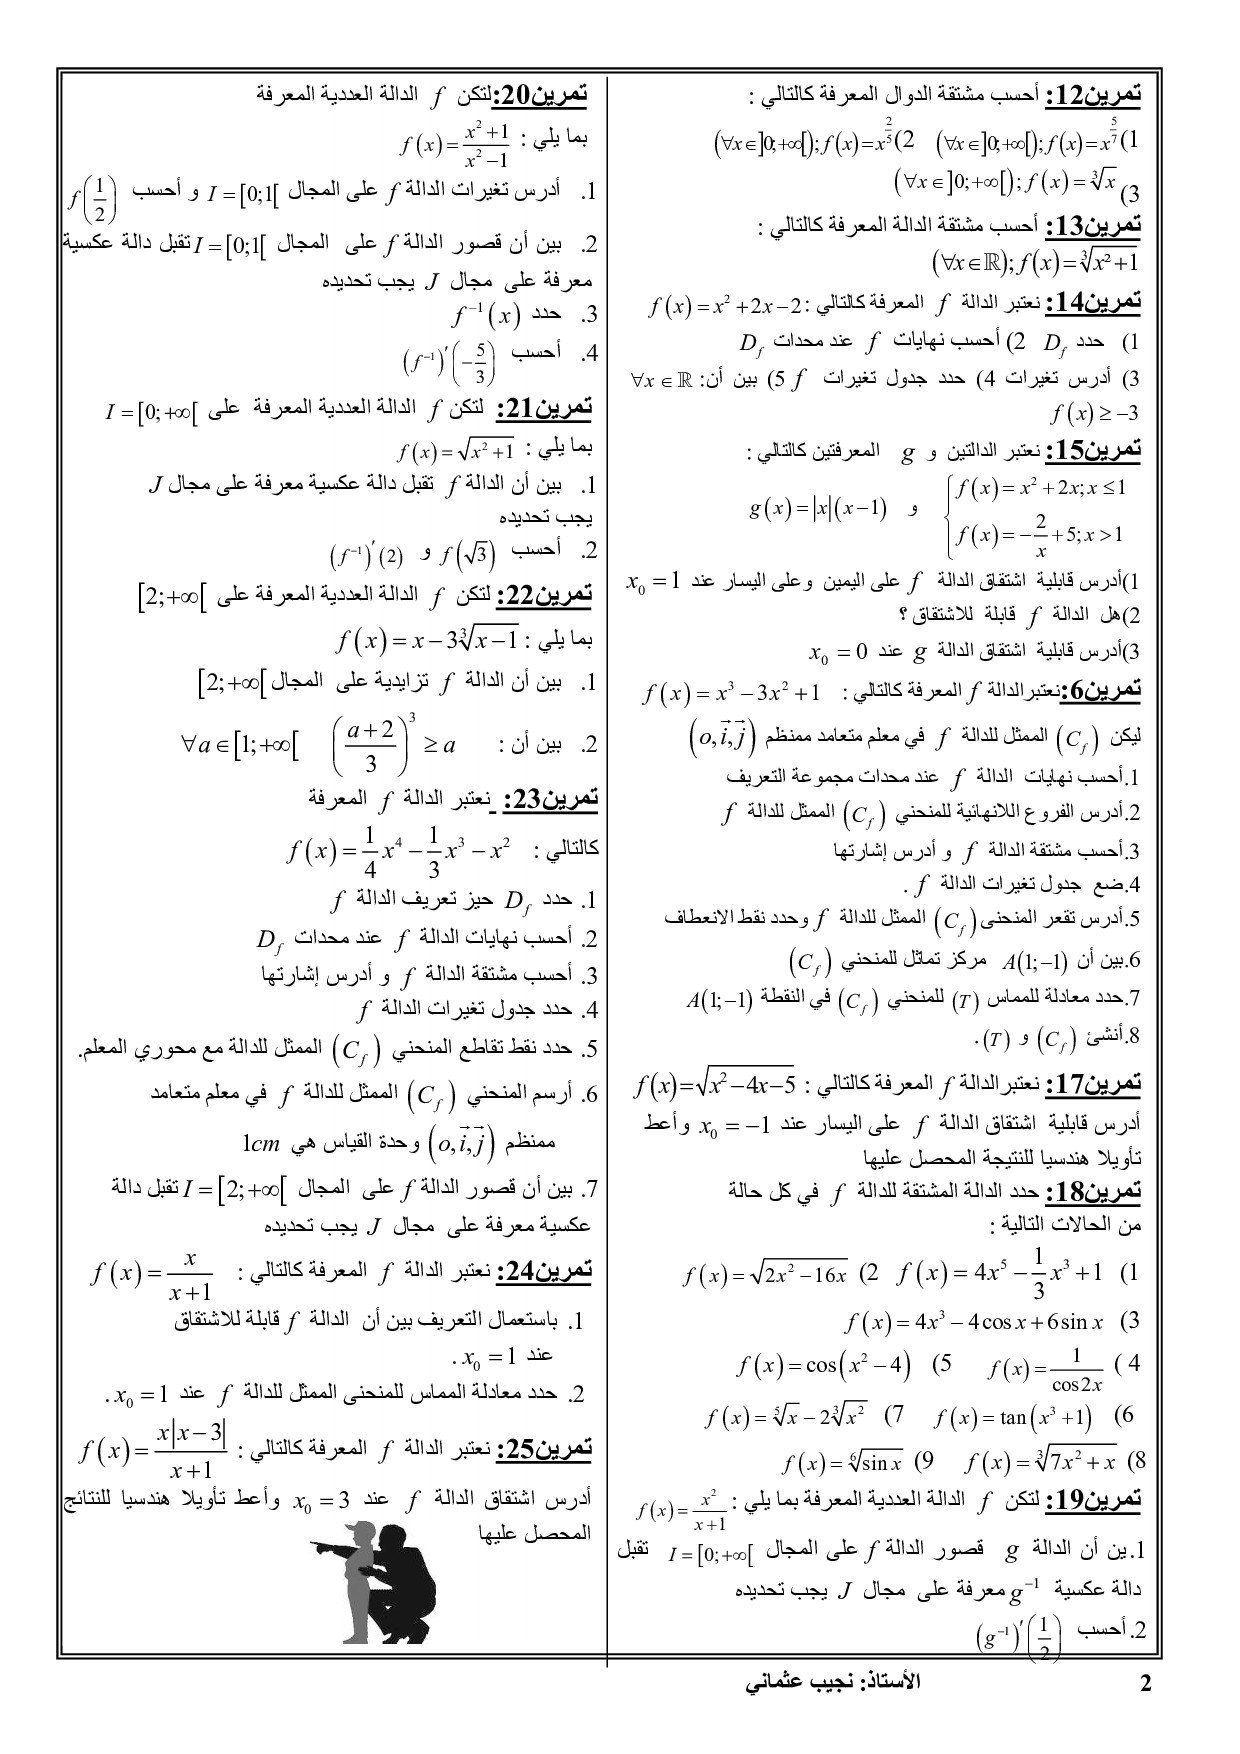 تمرين12: أحسب مشتقة الدوال المعرفة كالتالي :
1) (∀x∈]0;+∞[); f(x)=x^{5/7} 2) (∀x∈]0;+∞[); f(x)=x^{2/5}
3) (∀x∈]0;+∞[); f(x)=∛x
تمرين13: أحسب مشتقة الدالة المعرفة كالتالي :
(∀x∈ℝ); f(x)=∛(x²+1)
تمرين14: نعتبر الدالة f المعرفة كالتالي : f(x)=x²+2x−2
1) حدد D_f 2) أحسب نهايات f عند محدات D_f
3) أدرس تغيرات f 4) حدد جدول تغيرات 5) بين أن: ∀x∈ℝ
f(x)≥−3
تمرين15: نعتبر الدالتين و g المعرفتين كالتالي :
{ f(x)=x²+2x; x≤1
f(x)=−2/x+5; x>1 و g(x)=|x|(x−1)
1)أدرس قابلية اشتقاق الدالة f على اليمين وعلى اليسار عند x₀=1
2)هل الدالة f قابلة للاشتقاق ؟
3)أدرس قابلية اشتقاق الدالة g عند x₀=0
تمرين6:نعتبرالدالة f المعرفة كالتالي : f(x)=x³−3x²+1
ليكن (C_f) الممثل للدالة f في معلم متعامد ممنظم (o,i⃗,j⃗)
1.أحسب نهايات الدالة f عند محدات مجموعة التعريف
2.أدرس الفروع اللانهائية للمنحني (C_f) الممثل للدالة f
3.أحسب مشتقة الدالة f و أدرس إشارتها
4.ضع جدول تغيرات الدالة f .
5.أدرس تقعر المنحنى (C_f) الممثل للدالة f وحدد نقط الانعطاف
6.بين أن A(1;−1) مركز تماثل للمنحني (C_f)
7.حدد معادلة للمماس (T) للمنحني (C_f) في النقطة A(1;−1)
8.أنشئ (C_f) و (T).
تمرين17: نعتبرالدالة f المعرفة كالتالي : f(x)=√(x²−4x−5)
أدرس قابلية اشتقاق الدالة f على اليسار عند x₀=−1 وأعط
تأويلا هندسيا للنتيجة المحصل عليها
تمرين18: حدد الدالة المشتقة للدالة f في كل حالة
من الحالات التالية :
1) f(x)=4x⁵−(1/3)x³+1 2) f(x)=√(2x²−16x)
3) f(x)=4x³−4cos x+6sin x
4) f(x)=1/cos2x 5) f(x)=cos(x²−4)
6) f(x)=tan(x³+1) 7) f(x)=⁵√x−2∛(x²)
8) f(x)=∛(7x²+x) 9) f(x)=⁶√(sin x)
تمرين19: لتكن f الدالة العددية المعرفة بما يلي : f(x)=x²/(x+1)
1.ين أن الدالة g قصور الدالة f على المجال I=[0;+∞[ تقبل
دالة عكسية g⁻¹ معرفة على مجال J يجب تحديده
2.أحسب (g⁻¹)′(1/2)
تمرين20:لتكن f الدالة العددية المعرفة
بما يلي : f(x)=(x²+1)/(x²−1)
1. أدرس تغيرات الدالة f على المجال I=[0;1[ و أحسب f(1/2)
2. بين أن قصور الدالة f على المجال I=[0;1[ تقبل دالة عكسية
معرفة على مجال J يجب تحديده
3. حدد f⁻¹(x)
4. أحسب (f⁻¹)′(−5/3)
تمرين21: لتكن f الدالة العددية المعرفة على I=[0;+∞[
بما يلي : f(x)=√(x²+1)
1. بين أن الدالة f تقبل دالة عكسية معرفة على مجال J
يجب تحديده
2. أحسب f(√3) و (f⁻¹)′(2)
تمرين22: لتكن f الدالة العددية المعرفة على [2;+∞[
بما يلي : f(x)=x−3∛(x−1)
1. بين أن الدالة f تزايدية على المجال [2;+∞[
2. بين أن : ((a+2)/3)³≥a ∀a∈[1;+∞[
تمرين23: نعتبر الدالة f المعرفة
كالتالي : f(x)=(1/4)x⁴−(1/3)x³−x²
1. حدد D_f حيز تعريف الدالة f
2. أحسب نهايات الدالة f عند محدات D_f
3. أحسب مشتقة الدالة f و أدرس إشارتها
4. حدد جدول تغيرات الدالة f
5. حدد نقط تقاطع المنحني (C_f) الممثل للدالة مع محوري المعلم.
6. أرسم المنحني (C_f) الممثل للدالة f في معلم متعامد
ممنظم (o,i⃗,j⃗) وحدة القياس هي 1cm
7. بين أن قصور الدالة f على المجال I=[2;+∞[ تقبل دالة
عكسية معرفة على مجال J يجب تحديده
تمرين24: نعتبر الدالة f المعرفة كالتالي : f(x)=x/(x+1)
1. باستعمال التعريف بين أن الدالة f قابلة للاشتقاق
عند x₀=1 .
2. حدد معادلة المماس للمنحنى الممثل للدالة f عند x₀=1 .
تمرين25: نعتبر الدالة f المعرفة كالتالي : f(x)=x|x−3|/(x+1)
أدرس اشتقاق الدالة f عند x₀=3 وأعط تأويلا هندسيا للنتائج
المحصل عليها
الأستاذ: نجيب عثماني
2